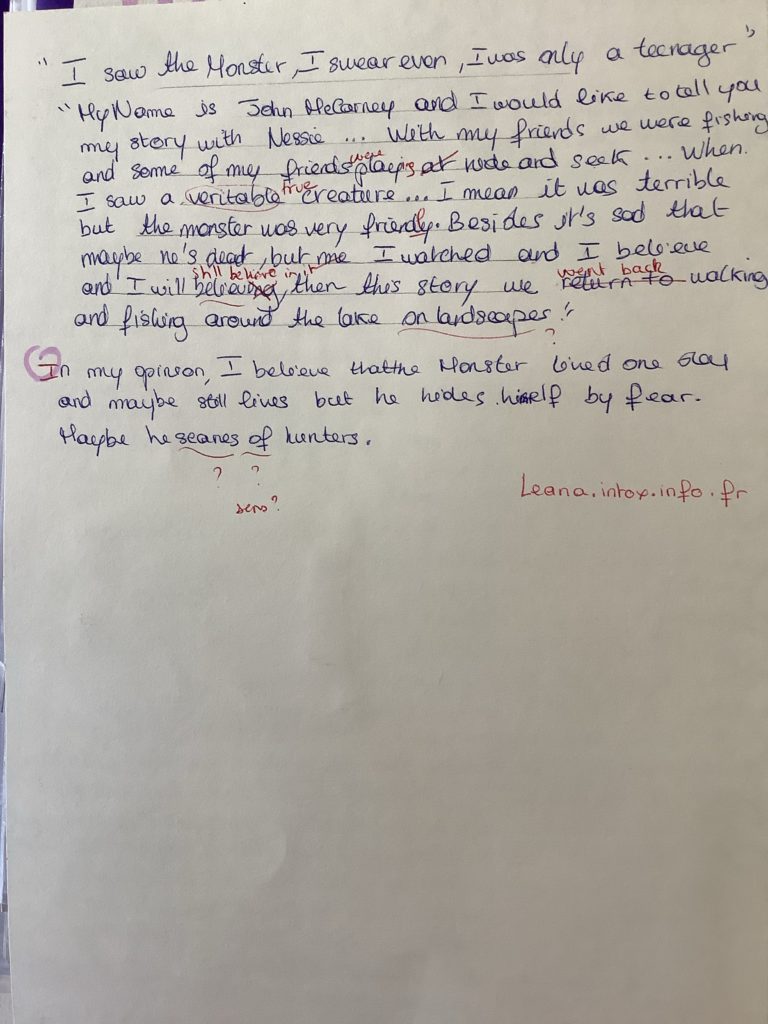 " I saw the Monster, I swear even, I was only a teenager "
" My Name is John McCarney and I would like to tell you
my story with Nessie ... With my friends we were fishing
were
and some of my friends playing at hide and seek ... When
I saw a veritable true creature ... I mean it was terrible
but the monster was very friendly. Besides it's sad that
maybe he's dead, but me I watched and I believe
still believe in it went back
and I will believing, then this story we return to walking
and fishing around the lake on landscapes !"
?
In my opinion, I believe that the Monster lived one day
and maybe still lives but he hides himself by fear.
Maybe he seanes of hunters.
? ?
sens?
Leana.intox.info.fr